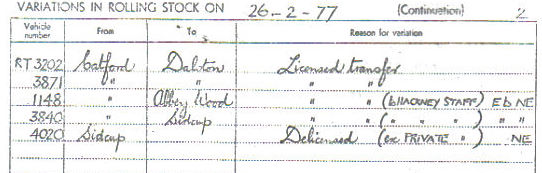 VARIATIONS IN ROLLING STOCK ON 26-2-77 (Continuation) 2
Vehicle number From To Reason for variation
RT 3202 Catford Dalston Licensed transfer
3871 " " " "
1148 " Abbey Wood " " (b HACKNEY STAFF) Eb NE
3840 " Sidcup " " ( " " " ) " "
4020 Sidcup Delicensed (ex PRIVATE " ) NE